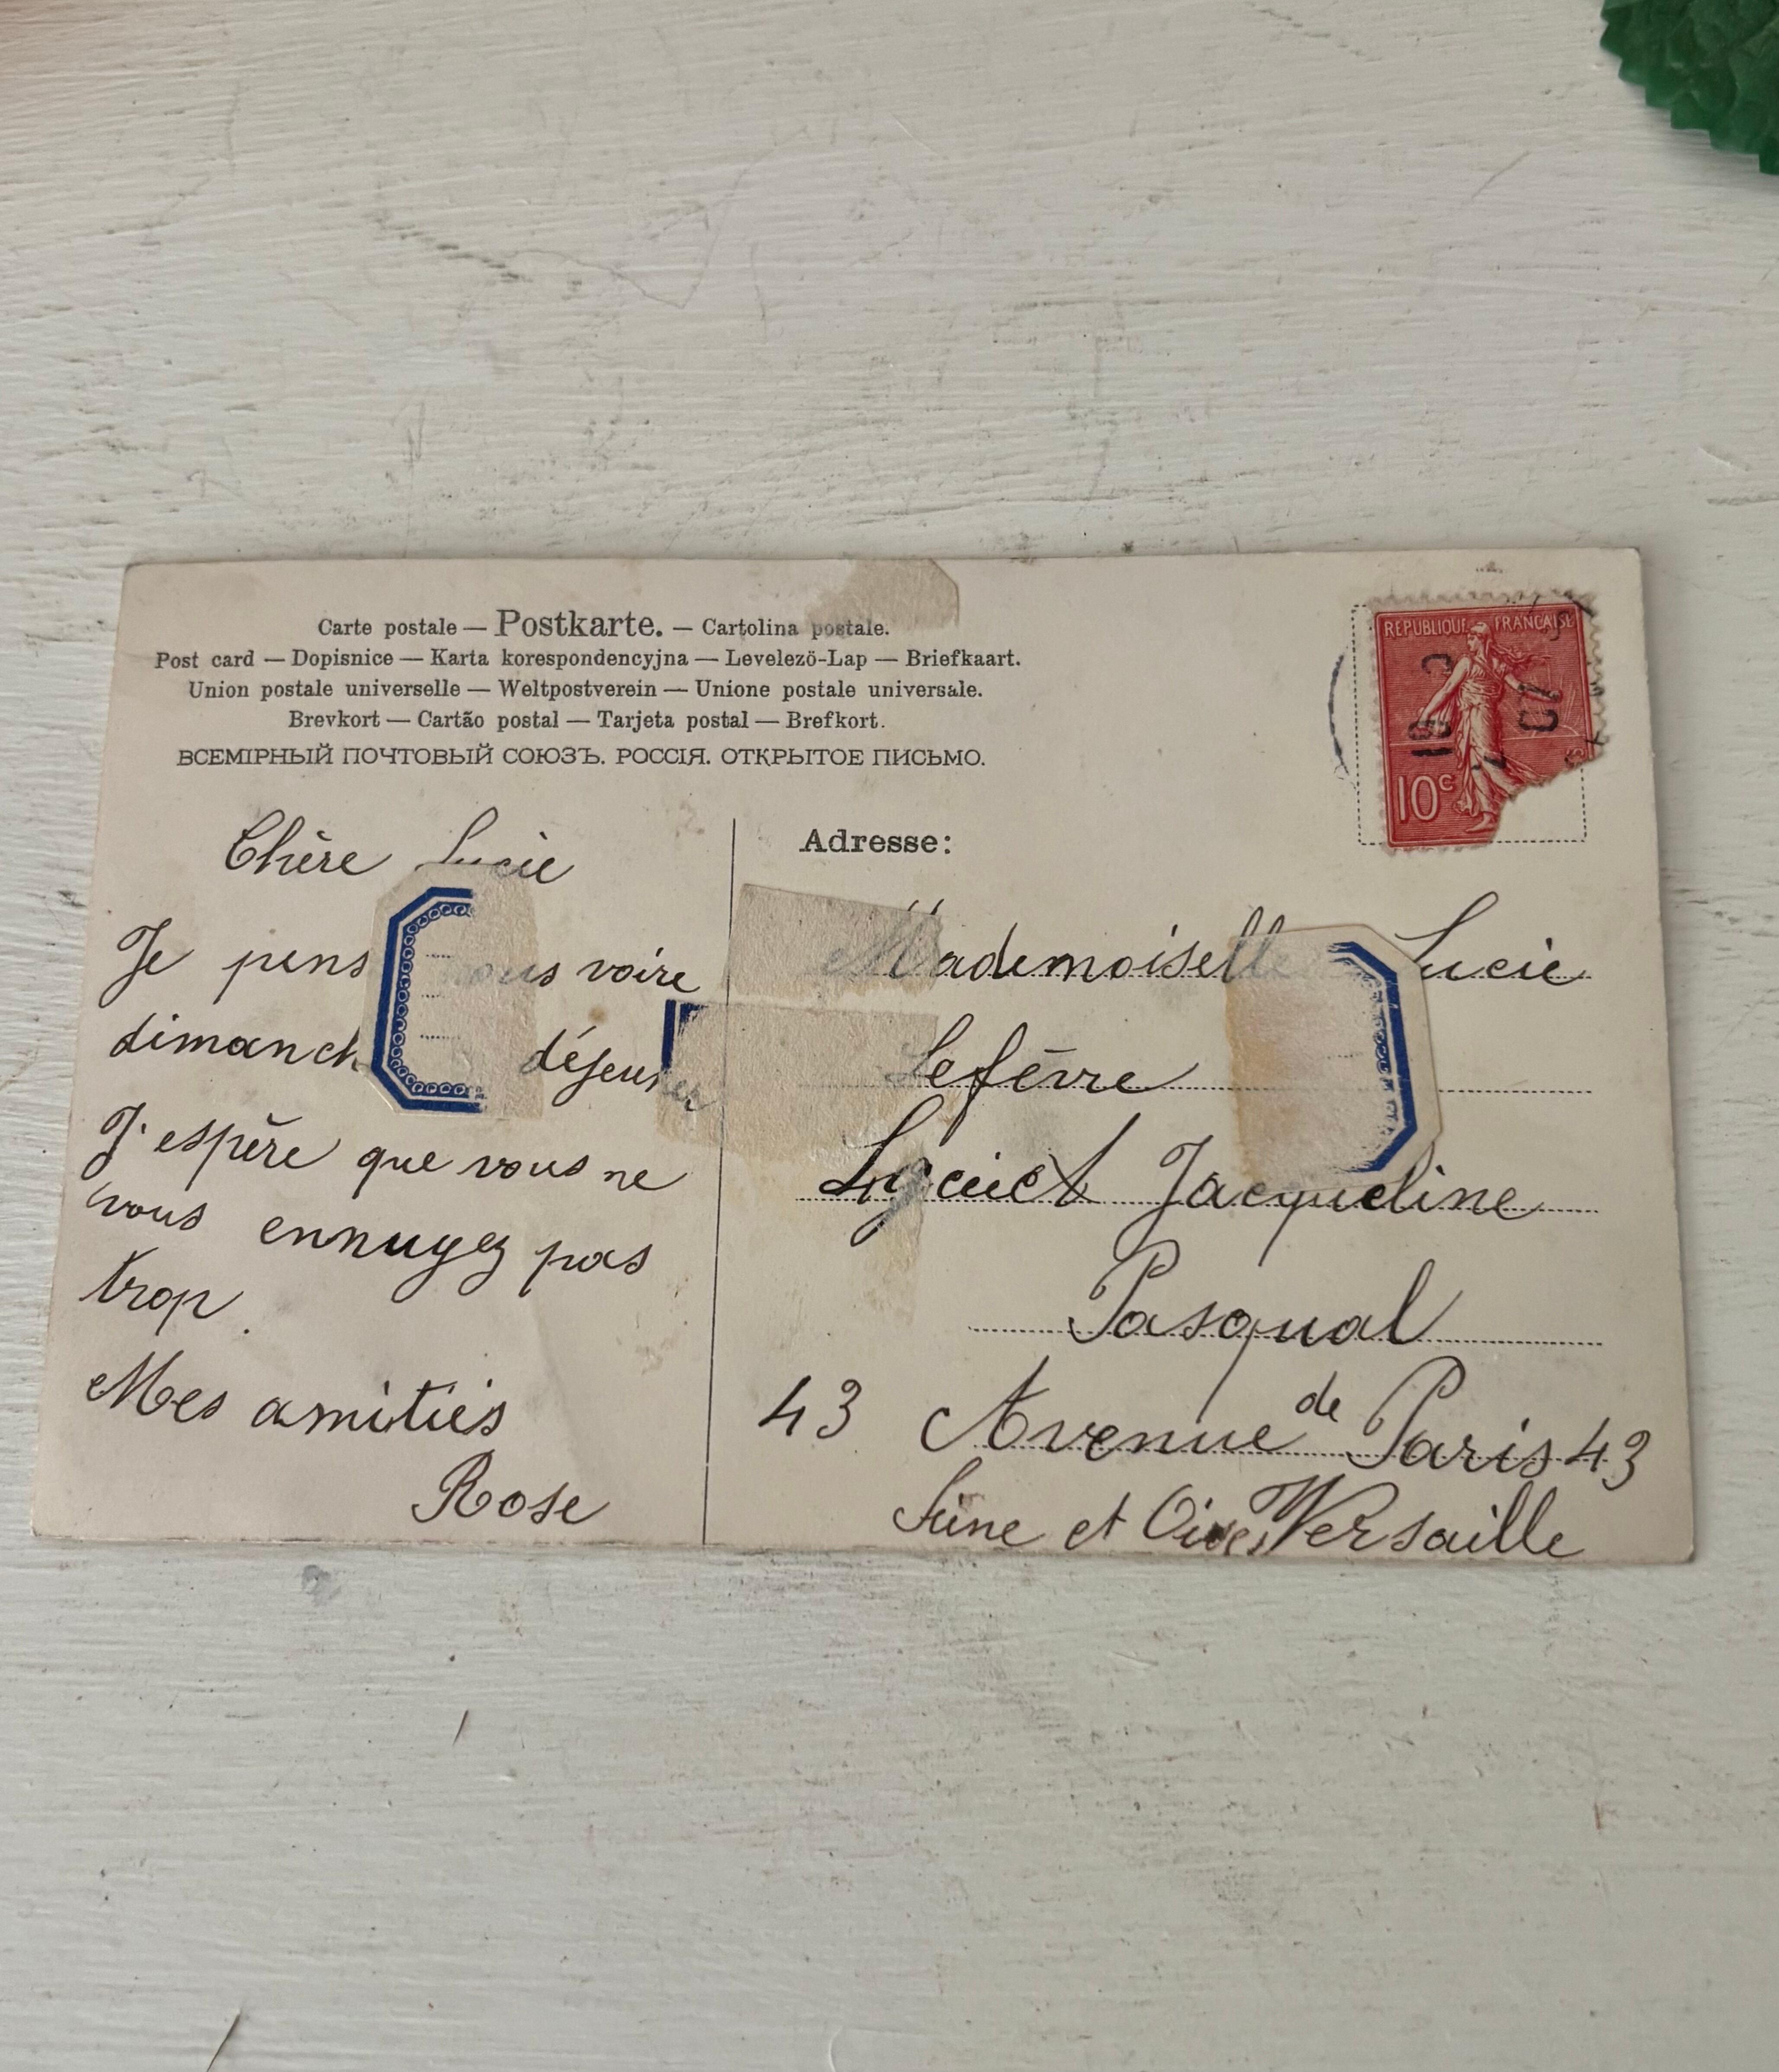 Carte postale — Postkarte. — Cartolina postale.
Post card — Dopisnice — Karta korespondencyjna — Levelező-Lap — Briefkaart.
Union postale universelle — Weltpostverein — Unione postale universale.
Brevkort — Cartão postal — Tarjeta postal — Brefkort.
ВСЕМІРНЫЙ ПОЧТОВЫЙ СОЮЗЪ. РОССІЯ. ОТКРЫТОЕ ПИСЬМО.
REPUBLIQUE FRANÇAISE
10c
Chère Lucie
Je pens vous voire
dimanch déjeuner
J'espère que vous ne
vous ennuyez pas
trop.
Mes amitiés
Rose
Adresse:
Mademoiselle Lucie
Lefèvre
Jacqueline
Pasqual
43 Avenue de Paris 43
Seine et Oise, Versaille